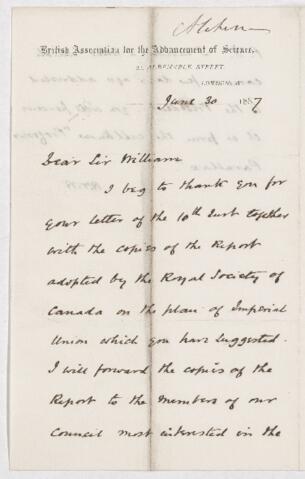 British Association for the Advancement of Science,
22, ALBEMARLE STREET,
LONDON, W.
June 30 1887
Dear Sir William
I beg to thank you for
your letter of the 10th Inst together
with the copies of the Report
adopted by the Royal Society of
Canada on the plan of Imperial
Union which you have suggested.
I will forward the copies of the
Report to the members of our
Council most interested in the